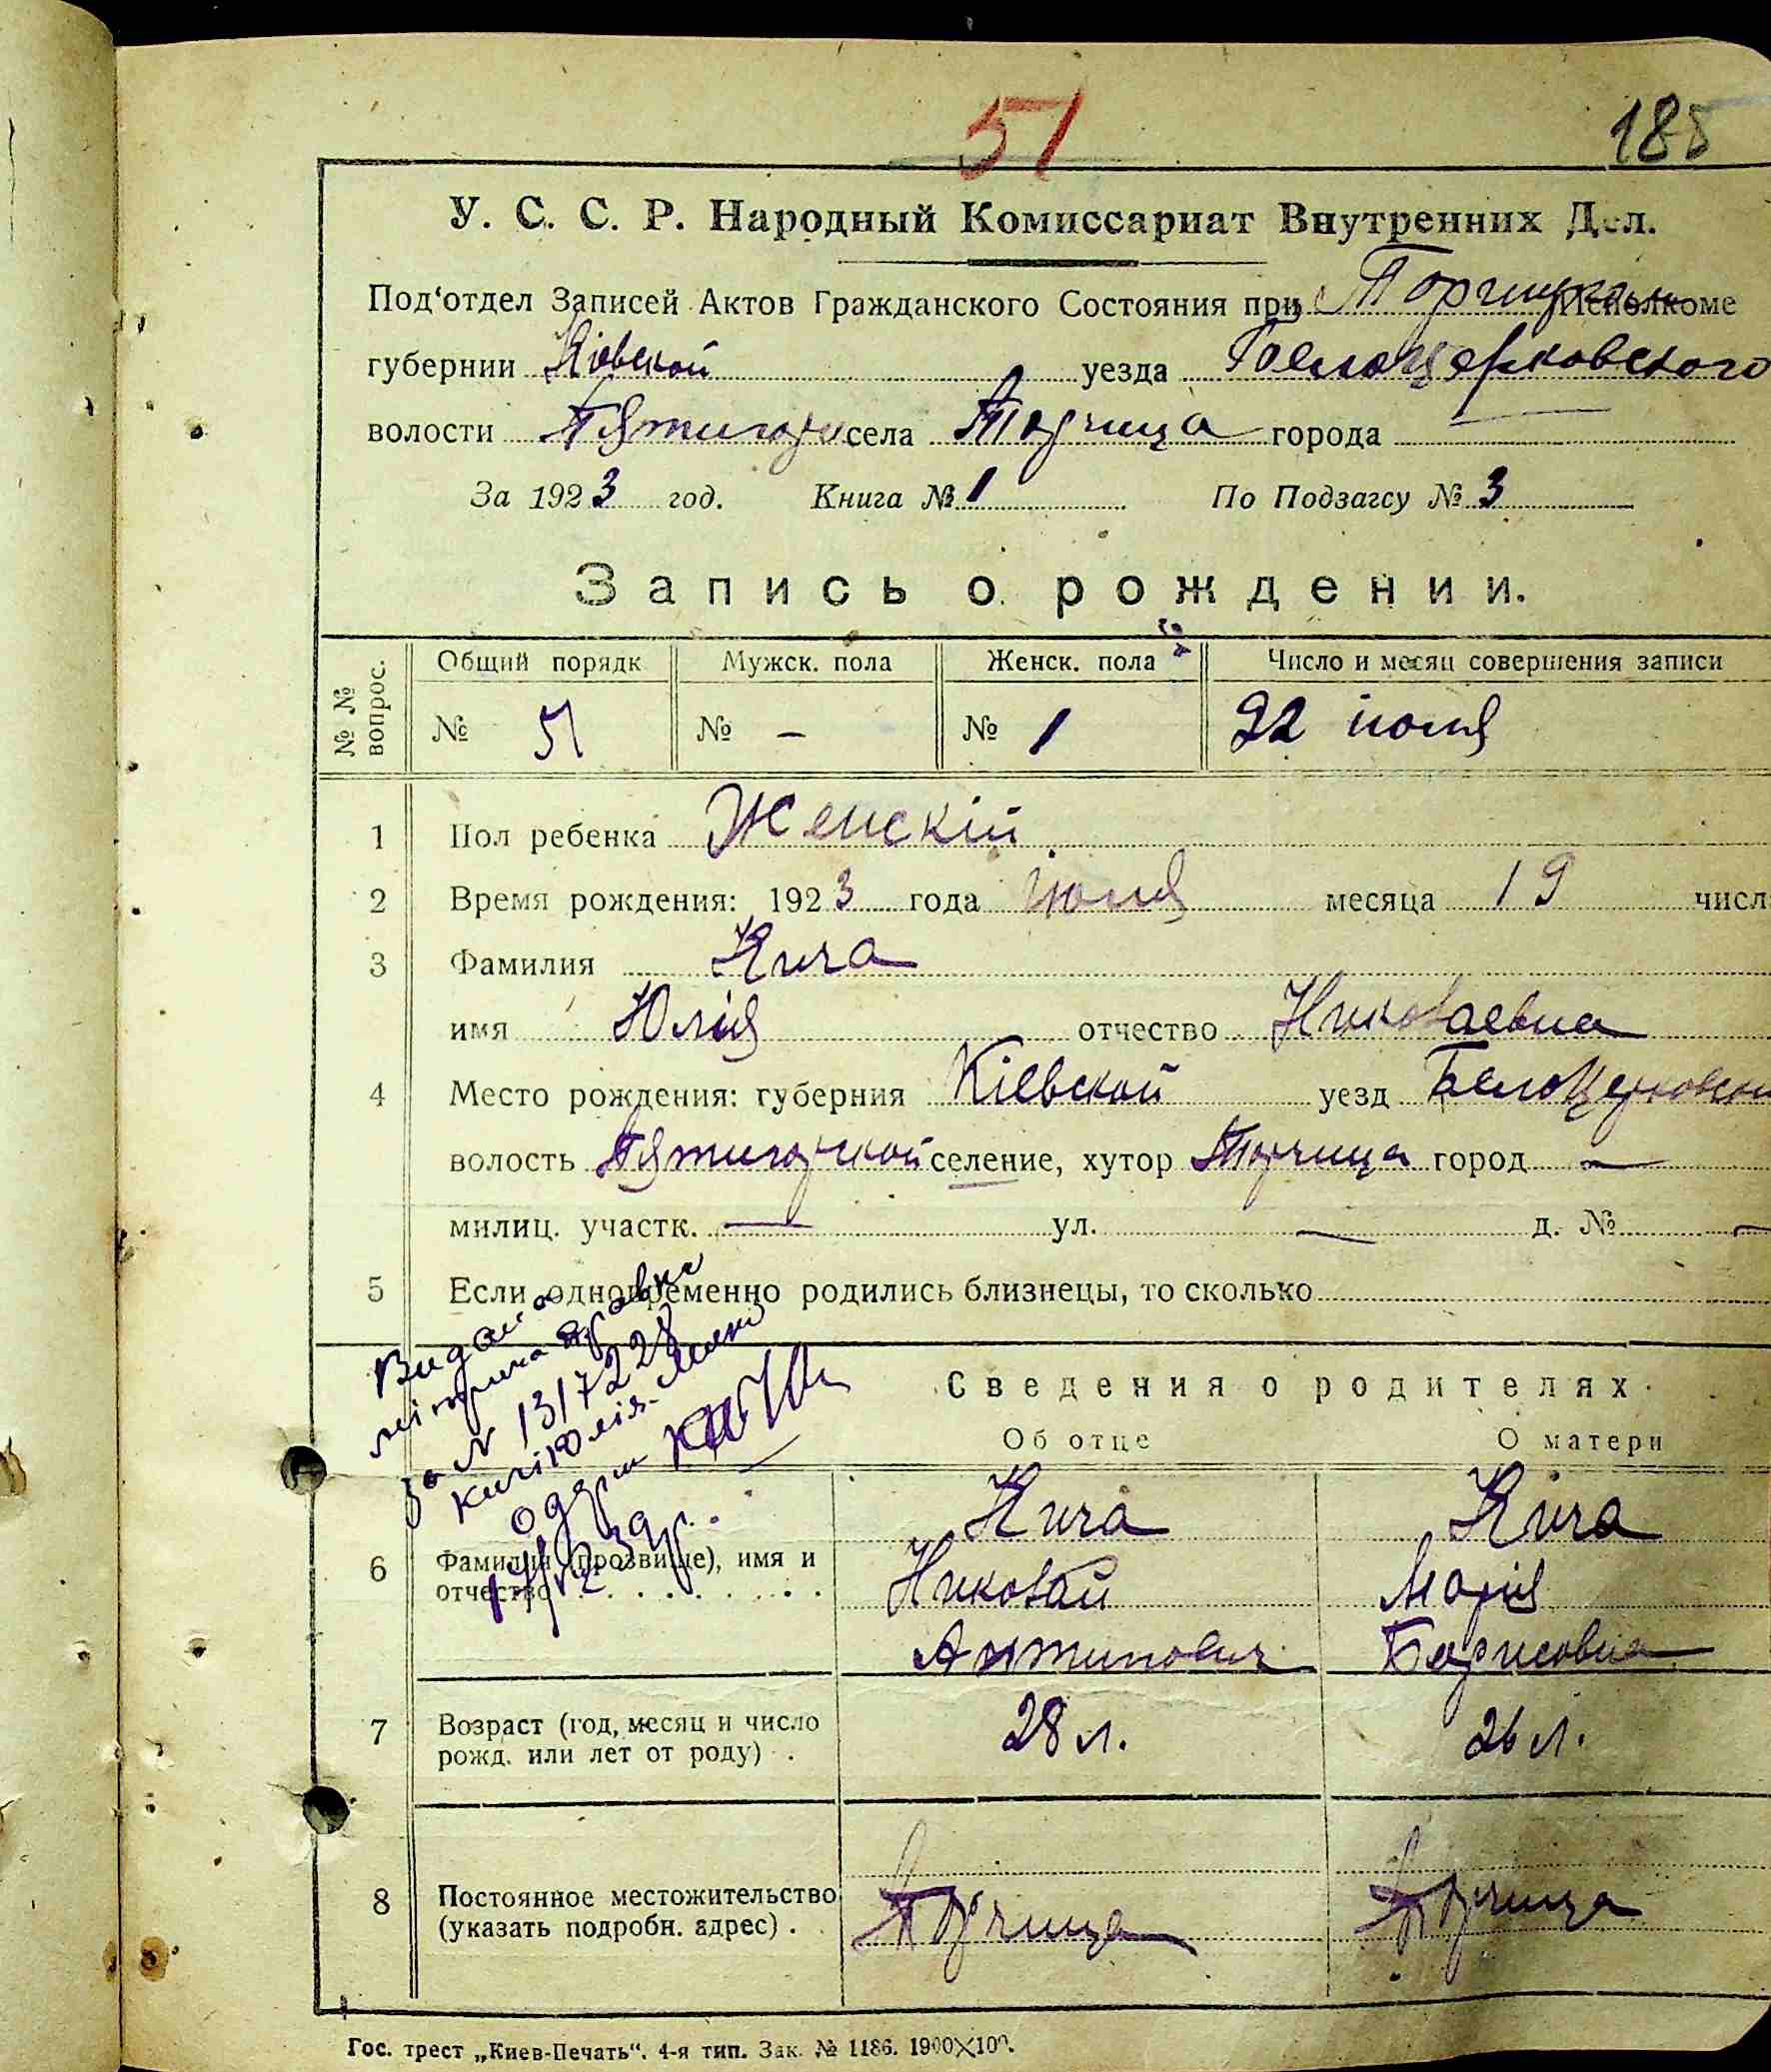 51
185
У. С. С. Р. Народный Комиссариат Внутренних Дел.
Под‘отдел Записей Актов Гражданского Состояния при Торчицком Исполкоме
губернии Киевской уезда Белоцерковского
волости Пятигор села Торчица города —
За 1923 год. Книга № 1 По Подзагсу № 3
Запись о рождении.
№ № вопрос. Общий порядк Мужск. пола Женск. пола Число и месяц совершения записи
№ 51 № – № 1 22 июня
1 Пол ребенка Женскій
2 Время рождения: 1923 года июня месяца 19 числ
3 Фамилия Кича
имя Юлія отчество Николаевна
4 Место рождения: губерния Кіевской уезд Белоцерковской
волость Пятигорской селение, хутор Торчица город —
милиц. участк. — ул. — д. № —
5 Если одновременно родились близнецы, то сколько
Видано
за N 1317228
Сведения о родителях.
Об отце О матери
6 Фамилия (прозвище), имя и отчество
Кича Кича
Николай Марія
Антипович Борисовна
7 Возраст (год, месяц и число рожд. или лет от роду) . 28 л. 26 л.
8 Постоянное местожительство (указать подробн. адрес) . Торчица Торчица
Гос. трест „Киев-Печать“. 4-я тип. Зак. № 1186. 1900×100.